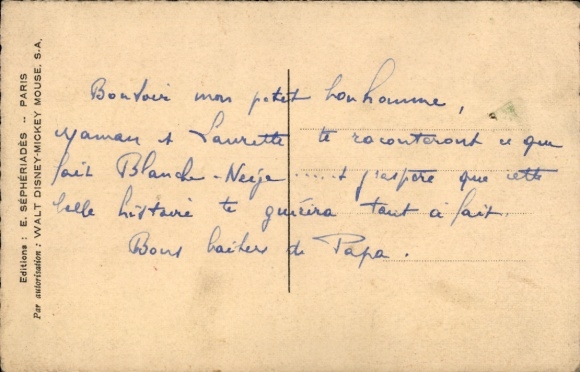 Editions : E. SÉPHÉRIADÈS -- PARIS
Par autorisation : WALT DISNEY-MICKEY MOUSE. S.A.
Bonsoir mon petit bonhomme,
Maman et Laurette te raconteront ce que
fait Blanche-Neige ..... et j'espère que cette
belle histoire te guérira tout à fait.
Bons baisers de Papa.